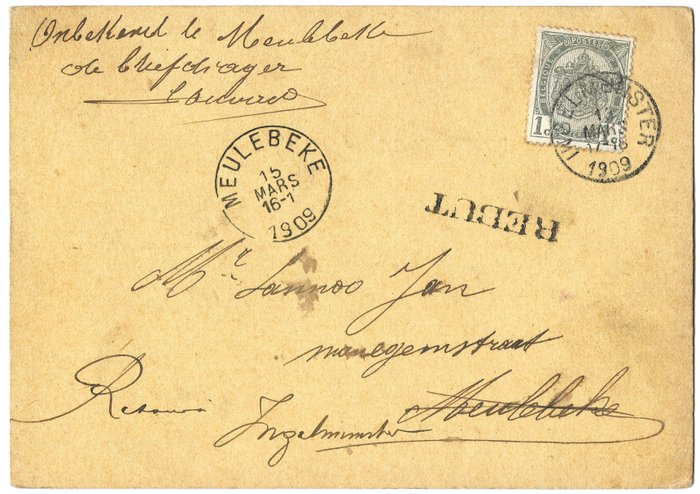 Onbekend te Meulebeke
de briefdrager
1c
INGELMUNSTER
MARS
1909
MEULEBEKE
15
MARS
16-1
1909
REBUT
Mr. Lannoo Jan
manegemstraat
Meulebeke
Retour
Ingelmunster